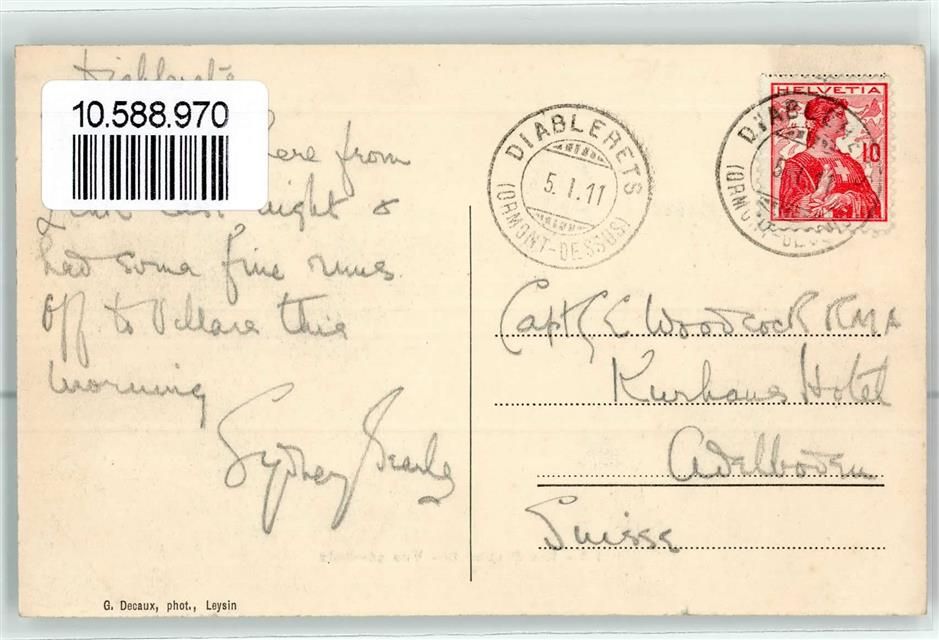 Diablerets
10.588.970
here from
last night &
had some fine runs
off to Villars this
morning
Sydney Searle
G. Decaux, phot., Leysin
DIABLERETS
5.I.11
(ORMONT-DESSUS)
HELVETIA
10
DIABLERETS
(ORMONT-DESSUS)
Capt G E Woodcock RMA
Kurhaus Hotel
Adelboden
Suisse